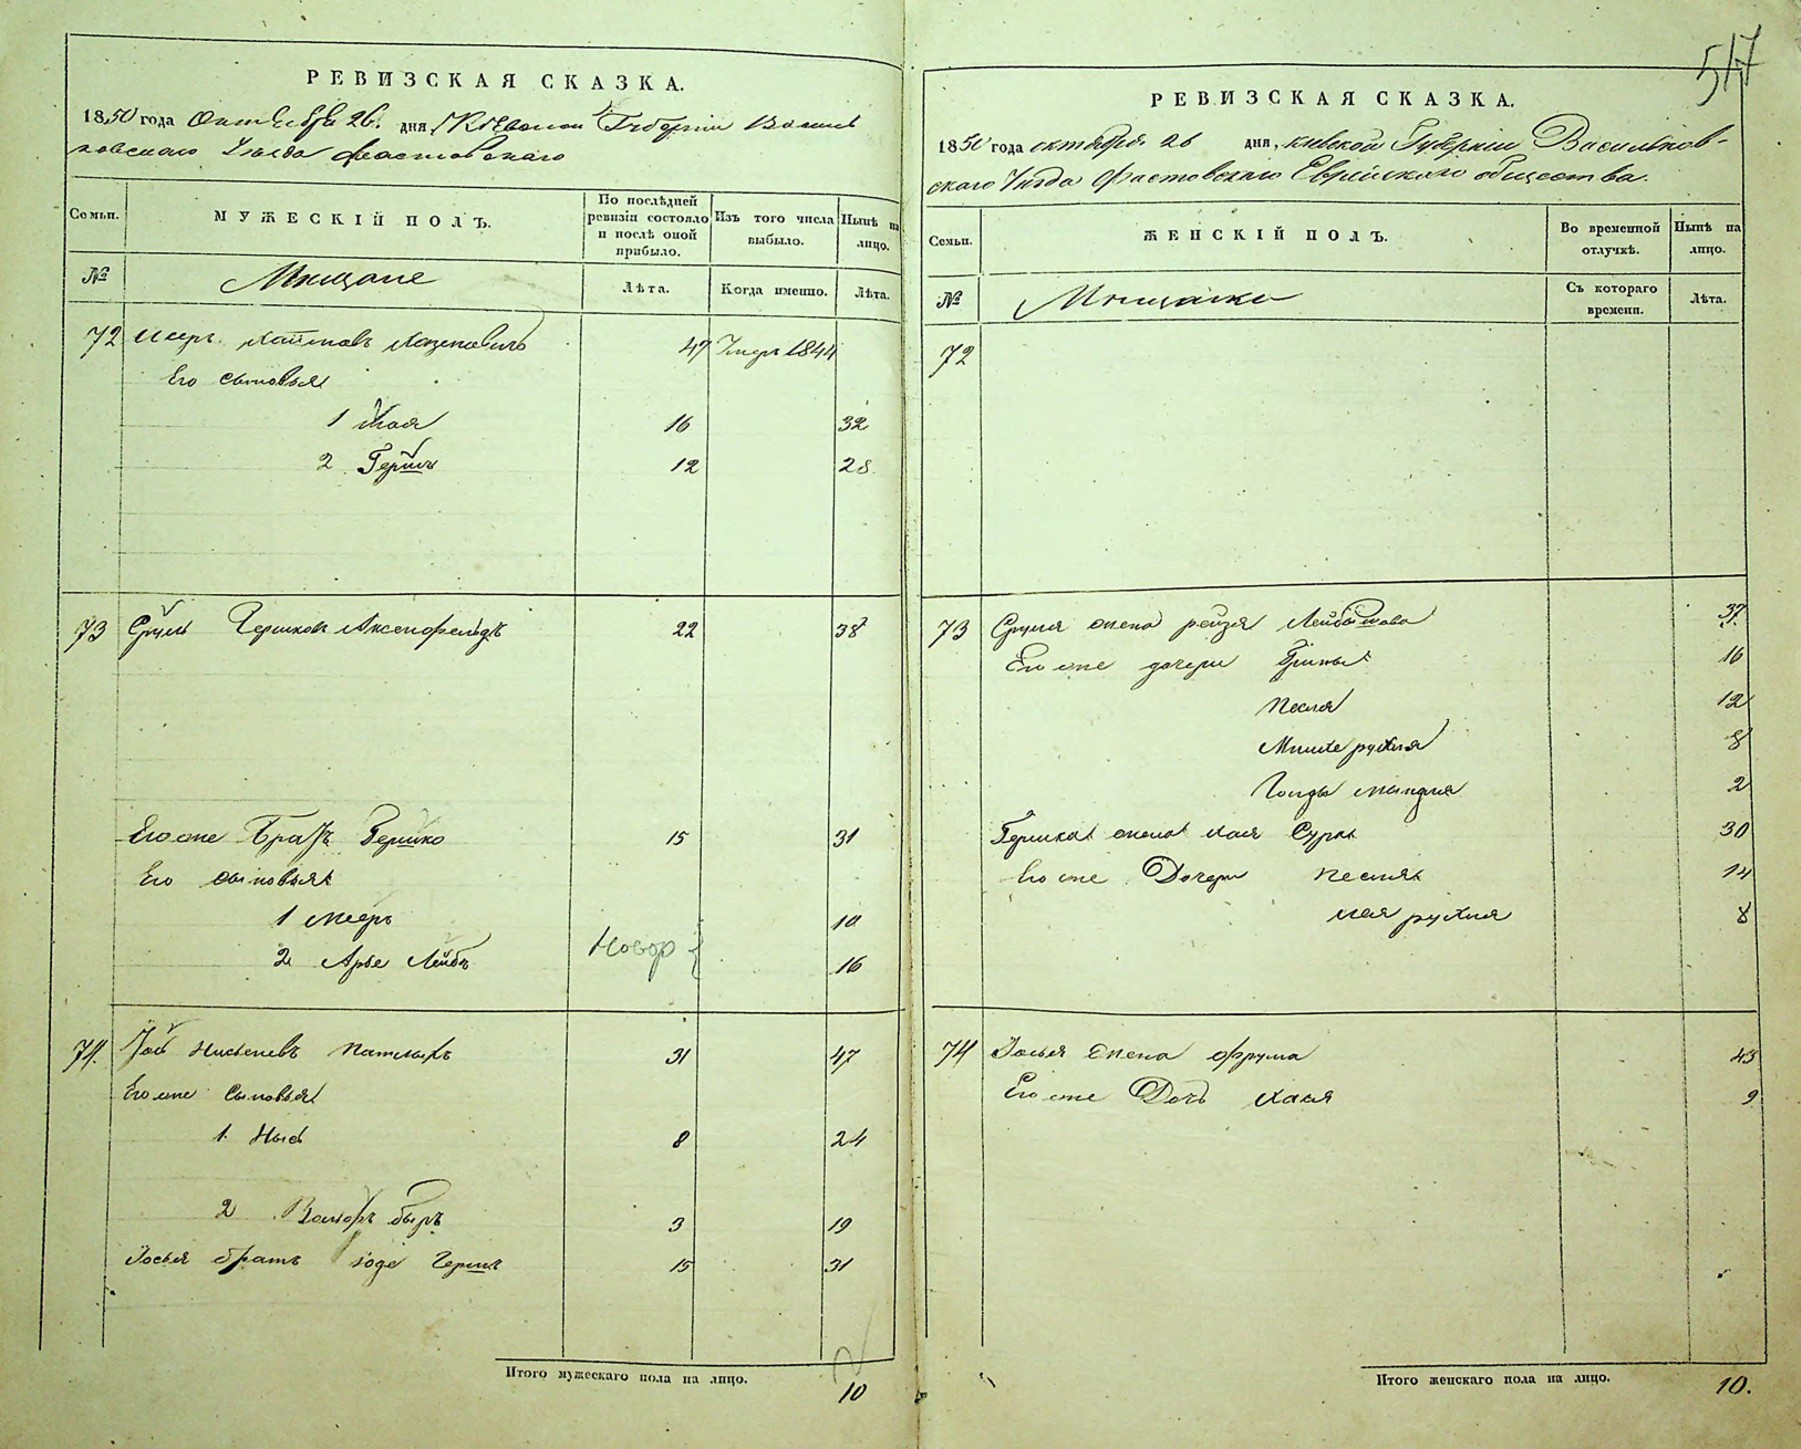 517
РЕВИЗСКАЯ СКАЗКА.
1850 года Октября 26. дня Киевской Губернии Василь
ковскаго Уезда Фастовскаго
Семьи.
МУЖЕСКІЙ ПОЛЪ.
По послѣдней ревизіи состояло и послѣ оной прибыло.
Изъ того числа выбыло.
Нынѣ на лицо.
№
Мещане
Лѣта.
Когда именно.
Лѣта.
72 47 Умеръ 1844
Его сыновья
1 16 32
2 Гершъ 12 28
73 Сруль Гершковъ Аксенфельдъ 22 38
Его же Братъ Гершко 15 31
Его сыновья
1 Мееръ 10
Новор
2 Арье Лейбъ 16
74. Іось 31 47
Его же Сыновья
1. Нысь 8 24
2 Беръ 3 19
Іосья братъ Іоде Гершъ 15 31
Итого мужескаго пола на лицо.
10
РЕВИЗСКАЯ СКАЗКА.
1850 года октября 26 дня, Киевской Губерніи Васильков-
скаго Уезда Фастовскаго Еврейскаго общества.
Семьи.
ЖЕНСКІЙ ПОЛЪ.
Во временной отлучкѣ.
Нынѣ на лицо.
№
Мещанки
Съ котораго времени.
Лѣта.
72
73 Сруля жена рейзя Лейбышова 37.
Его же дочери 16
Песля 12
рухля 8
Голда 2
Гершка жена хая Сура 30
Его же Дочери песля 14
хая рухля 8
74 Іосья жена фрума 43
Его же Дочь хая 9
Итого женскаго пола на лицо.
10.